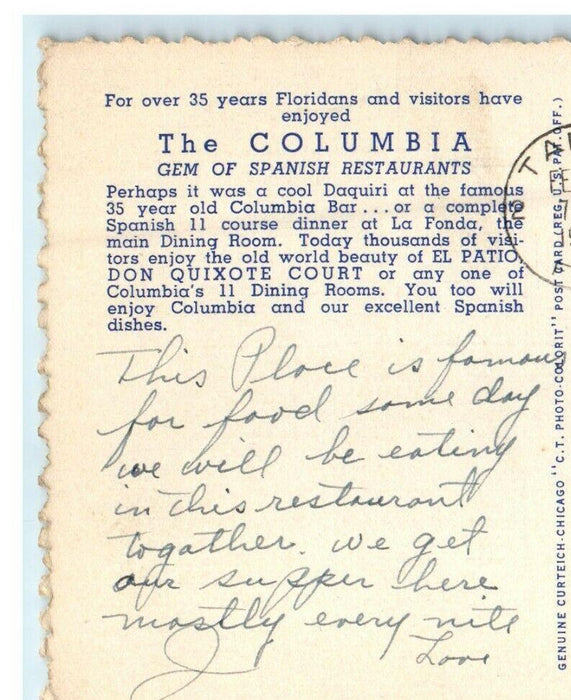 For over 35 years Floridans and visitors have
enjoyed
The COLUMBIA
GEM OF SPANISH RESTAURANTS
Perhaps it was a cool Daquiri at the famous
35 year old Columbia Bar...or a complete
Spanish 11 course dinner at La Fonda, the
main Dining Room. Today thousands of visi-
tors enjoy the old world beauty of EL PATIO,
DON QUIXOTE COURT or any one of
Columbia's 11 Dining Rooms. You too will
enjoy Columbia and our excellent Spanish
dishes.
This Place is famous
for food some day
we will be eating
in this restaurant
together. we get
our supper here
mostly every nite
Love
GENUINE CURTEICH-CHICAGO "C.T. PHOTO-COLORIT" POST CARD (REG. U.S. PAT. OFF.)